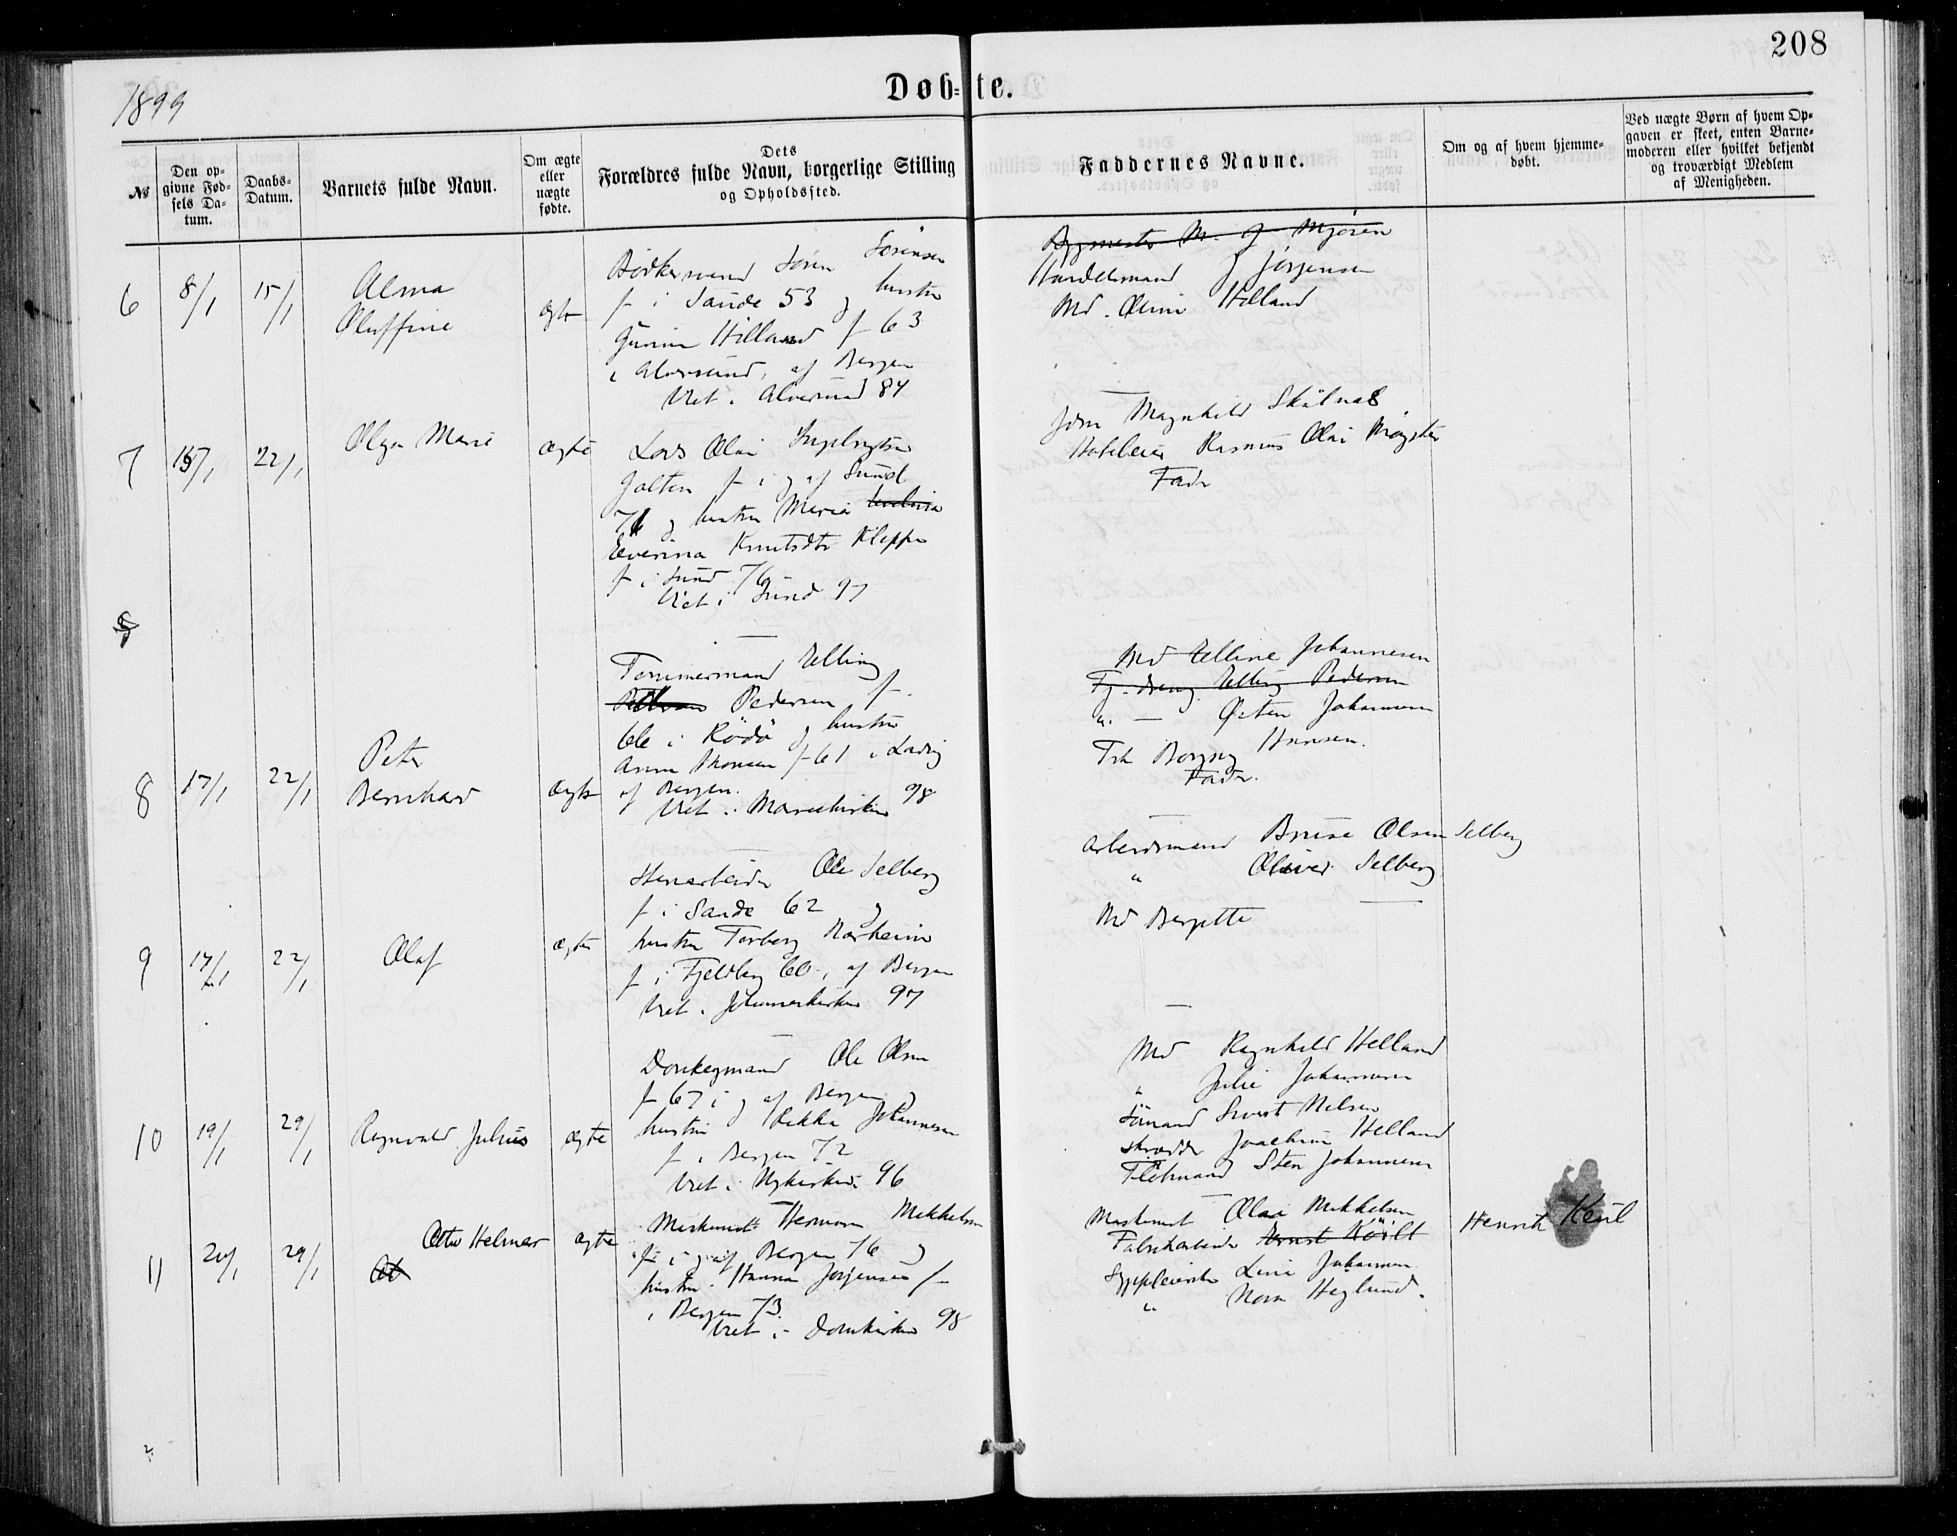 208
1899
Døb-te.
№
Den opgivne Fødsels Datum.
Daabs-Datum.
Barnets fulde Navn.
Om ægte eller uægte fødte.
Dets Forældres fulde Navn, borgerlige Stilling og Opholdssted.
Faddernes Navne.
Om og af hvem hjemmedøbt.
Ved uægte Børn af hvem Opgaven er skeet, enten Barnemoderen eller hvilket bekjendt og troværdigt Medlem af Menigheden.
6
8/1
15/1
Alma
Oluffine
ægte
Bødkersvend Søren Sørensen
f i Sande 53 og hustru
Hilland f 63
i Alversund, af Bergen
Viet i Alversund 84
M. J. Mjøsen
Handelsmand J Jørgensen
Md. Oline Hilland
7
15/1
22/1
Olga Marie
ægte
Lars Olai Ingebrigtsen
Golten f i og af Sund
71 og hustru Maria
Severina Knutsdtr Kleppe
f i Sund 76
Viet i Sund 97
Jdm Magnhild Skålnes
Hoteleier Rasmus Olai Møgster
Fader
8
17/1
22/1
Peter
Bernhard
ægte
Tømmermand Elling
Pedersen f
66 i Rödö og hustru
Anna Thomsen f 61 i Lavig
af Bergen.
Viet i Mariekirken 98
Md Elline Johannesen
Tj. dreng Elling Pedersen
" — Østen Johannesen
Frk Borgny Hansen.
Fader.
9
17/1
22/1
Olaf
ægte
Ole Selberg
f i Sande 62 og
hustru Torborg Norheim
f i Fjeldberg 66, af Bergen
Viet i Johanneskirken 97
Arbeidsmand Bruse Olsen Selberg
" Oliver Selberg
Md Bergitte
10
19/1
29/1
Ragnvald Julius
ægte
Donkeymand Ole Olsen
f 67 i og af Bergen og
hustru Rikka Johannesen
f i Bergen 72
Viet i Nykirken 96
Md Ragnhild Helland
" Julie Johannesen
Sömand Sivert Nelsen
Skrædder Joachim Helland
Flötmand Sten Johannesen
11
20/1
29/1
Otto Helmer
ægte
Maskinist Herman Mikkelsen
f i og af Bergen 76 og
hustru Hanna Jørgensen f
i Bergen 73.
Viet i Domkirken 98
Maskinist Olai Mikkelsen
Fabrikarbeider Ernst Köilt
Henrik Keil
Sypleierske Lina Johannesen
" Nora Heglund.